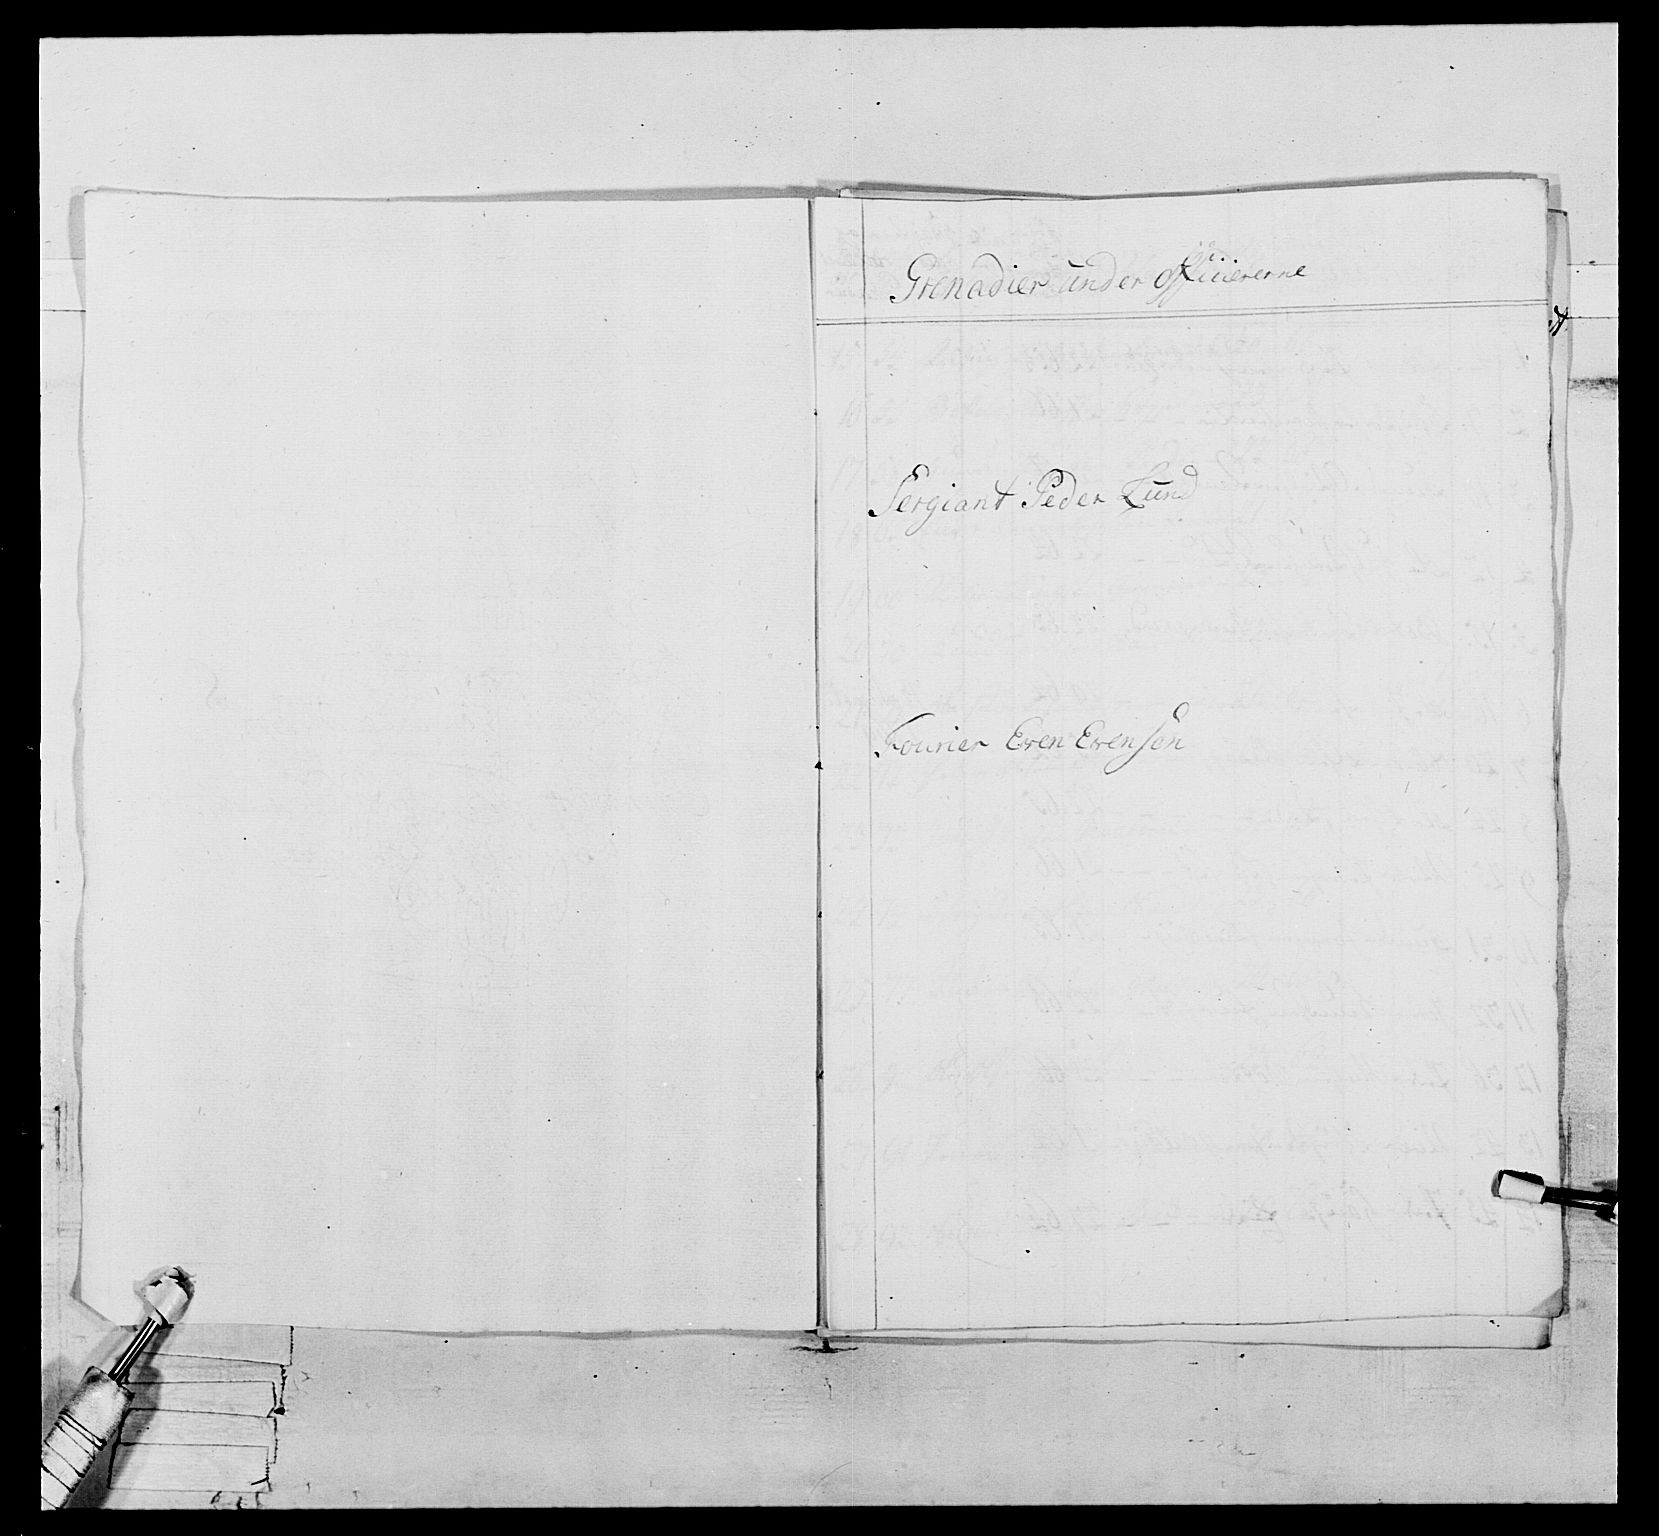 Grenadier under officiererne
Sergiant Peder Lund
Fourier Even Evensen